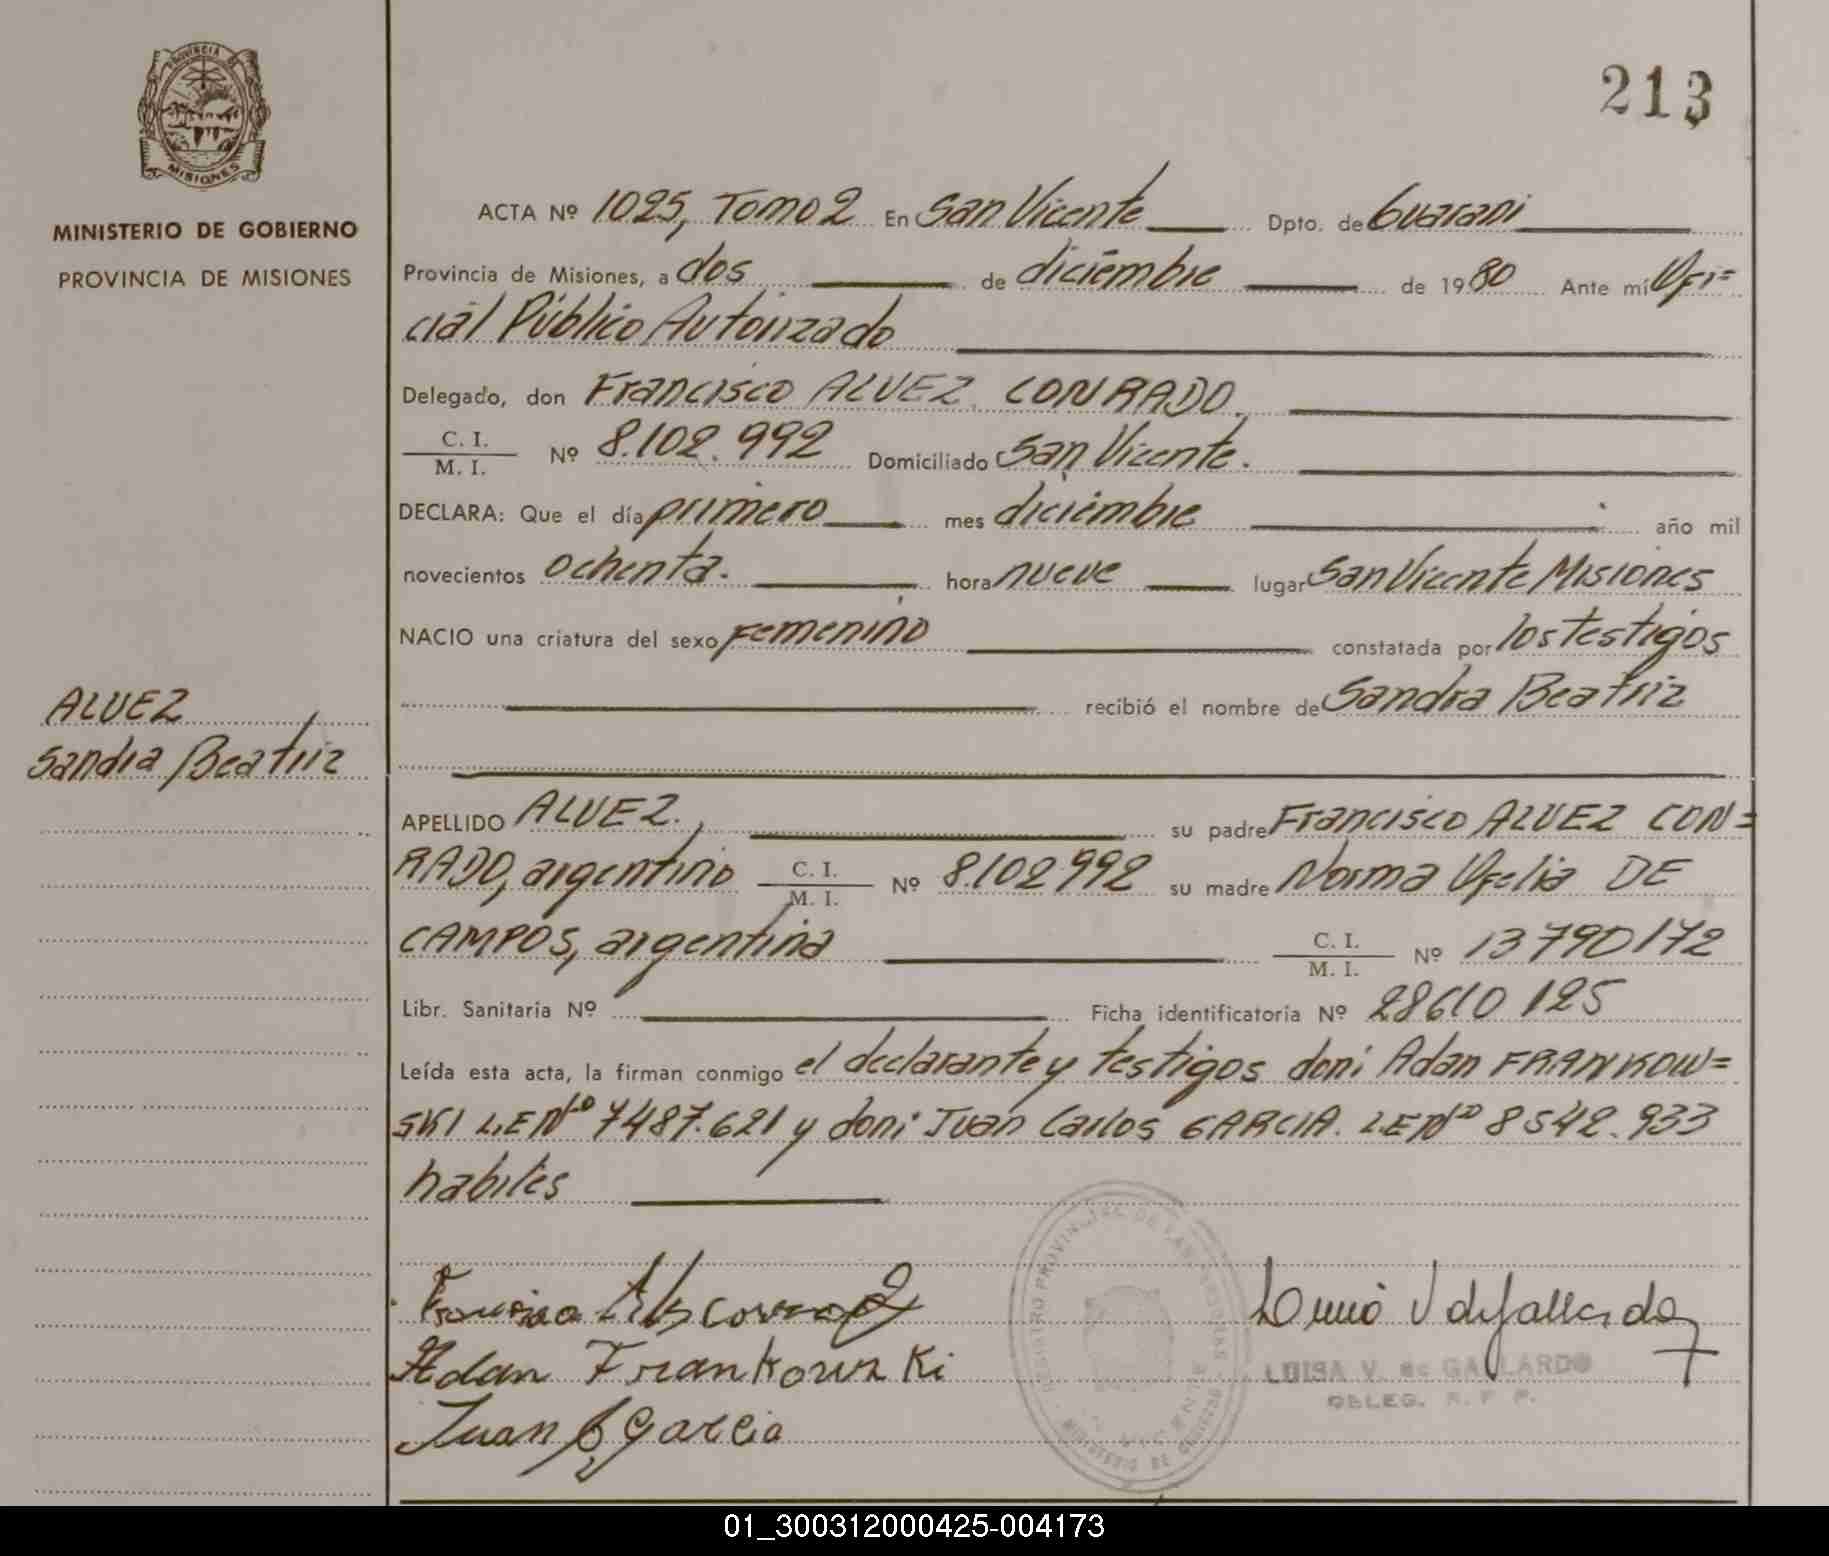 PROVINCIA DE
MISIONES
MINISTERIO DE GOBIERNO
PROVINCIA DE MISIONES
ALVEZ
Sandra Beatriz
213
ACTA Nº 1025, Tomo 2 En San Vicente Dpto. de Guarani
Provincia de Misiones, a dos de diciembre de 1980 Ante mí Ofi=
cial Público Autorizado
Delegado, don Francisco ALVEZ CONRADO.
C. I.
M. I. Nº 8.102.992 Domiciliado San Vicente.
DECLARA: Que el día primero mes diciembre año mil
novecientos ochenta. hora nueve lugar San Vicente Misiones
NACIO una criatura del sexo femenino constatada por los testigos
recibió el nombre de Sandra Beatriz
APELLIDO ALVEZ. su padre Francisco ALVEZ CON=
RADO, argentino C. I. M. I. Nº 8.102992 su madre Norma Ofelia DE
CAMPOS, argentina C. I. M. I. Nº 13790172
Libr. Sanitaria Nº Ficha identificatoria Nº 28610125
Leída esta acta, la firman conmigo el declarante y testigos don: Adan FRANKOW=
SKI L.E Nº 7487.621 y don: Juan Carlos GARCIA. L.E Nº 8542.933
habiles
Adan Frankowski
Juan C Garcia
LUISA V. de GALLARDO
DELEG. R. P. P.
REGISTRO PROVINCIAL DE LAS PERSONAS
MINISTERIO DE GOBIERNO
01_300312000425-004173